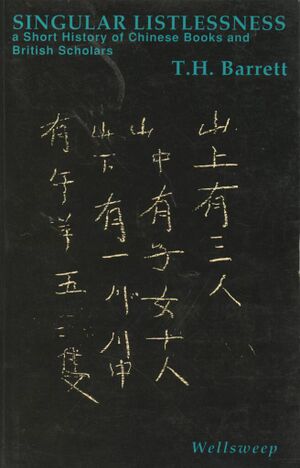 SINGULAR LISTLESSNESS
a Short History of Chinese Books and
British Scholars
T.H. Barrett
山上有三人
山中有子女十人
山下有一川川中
有午羊五隻
Wellsweep